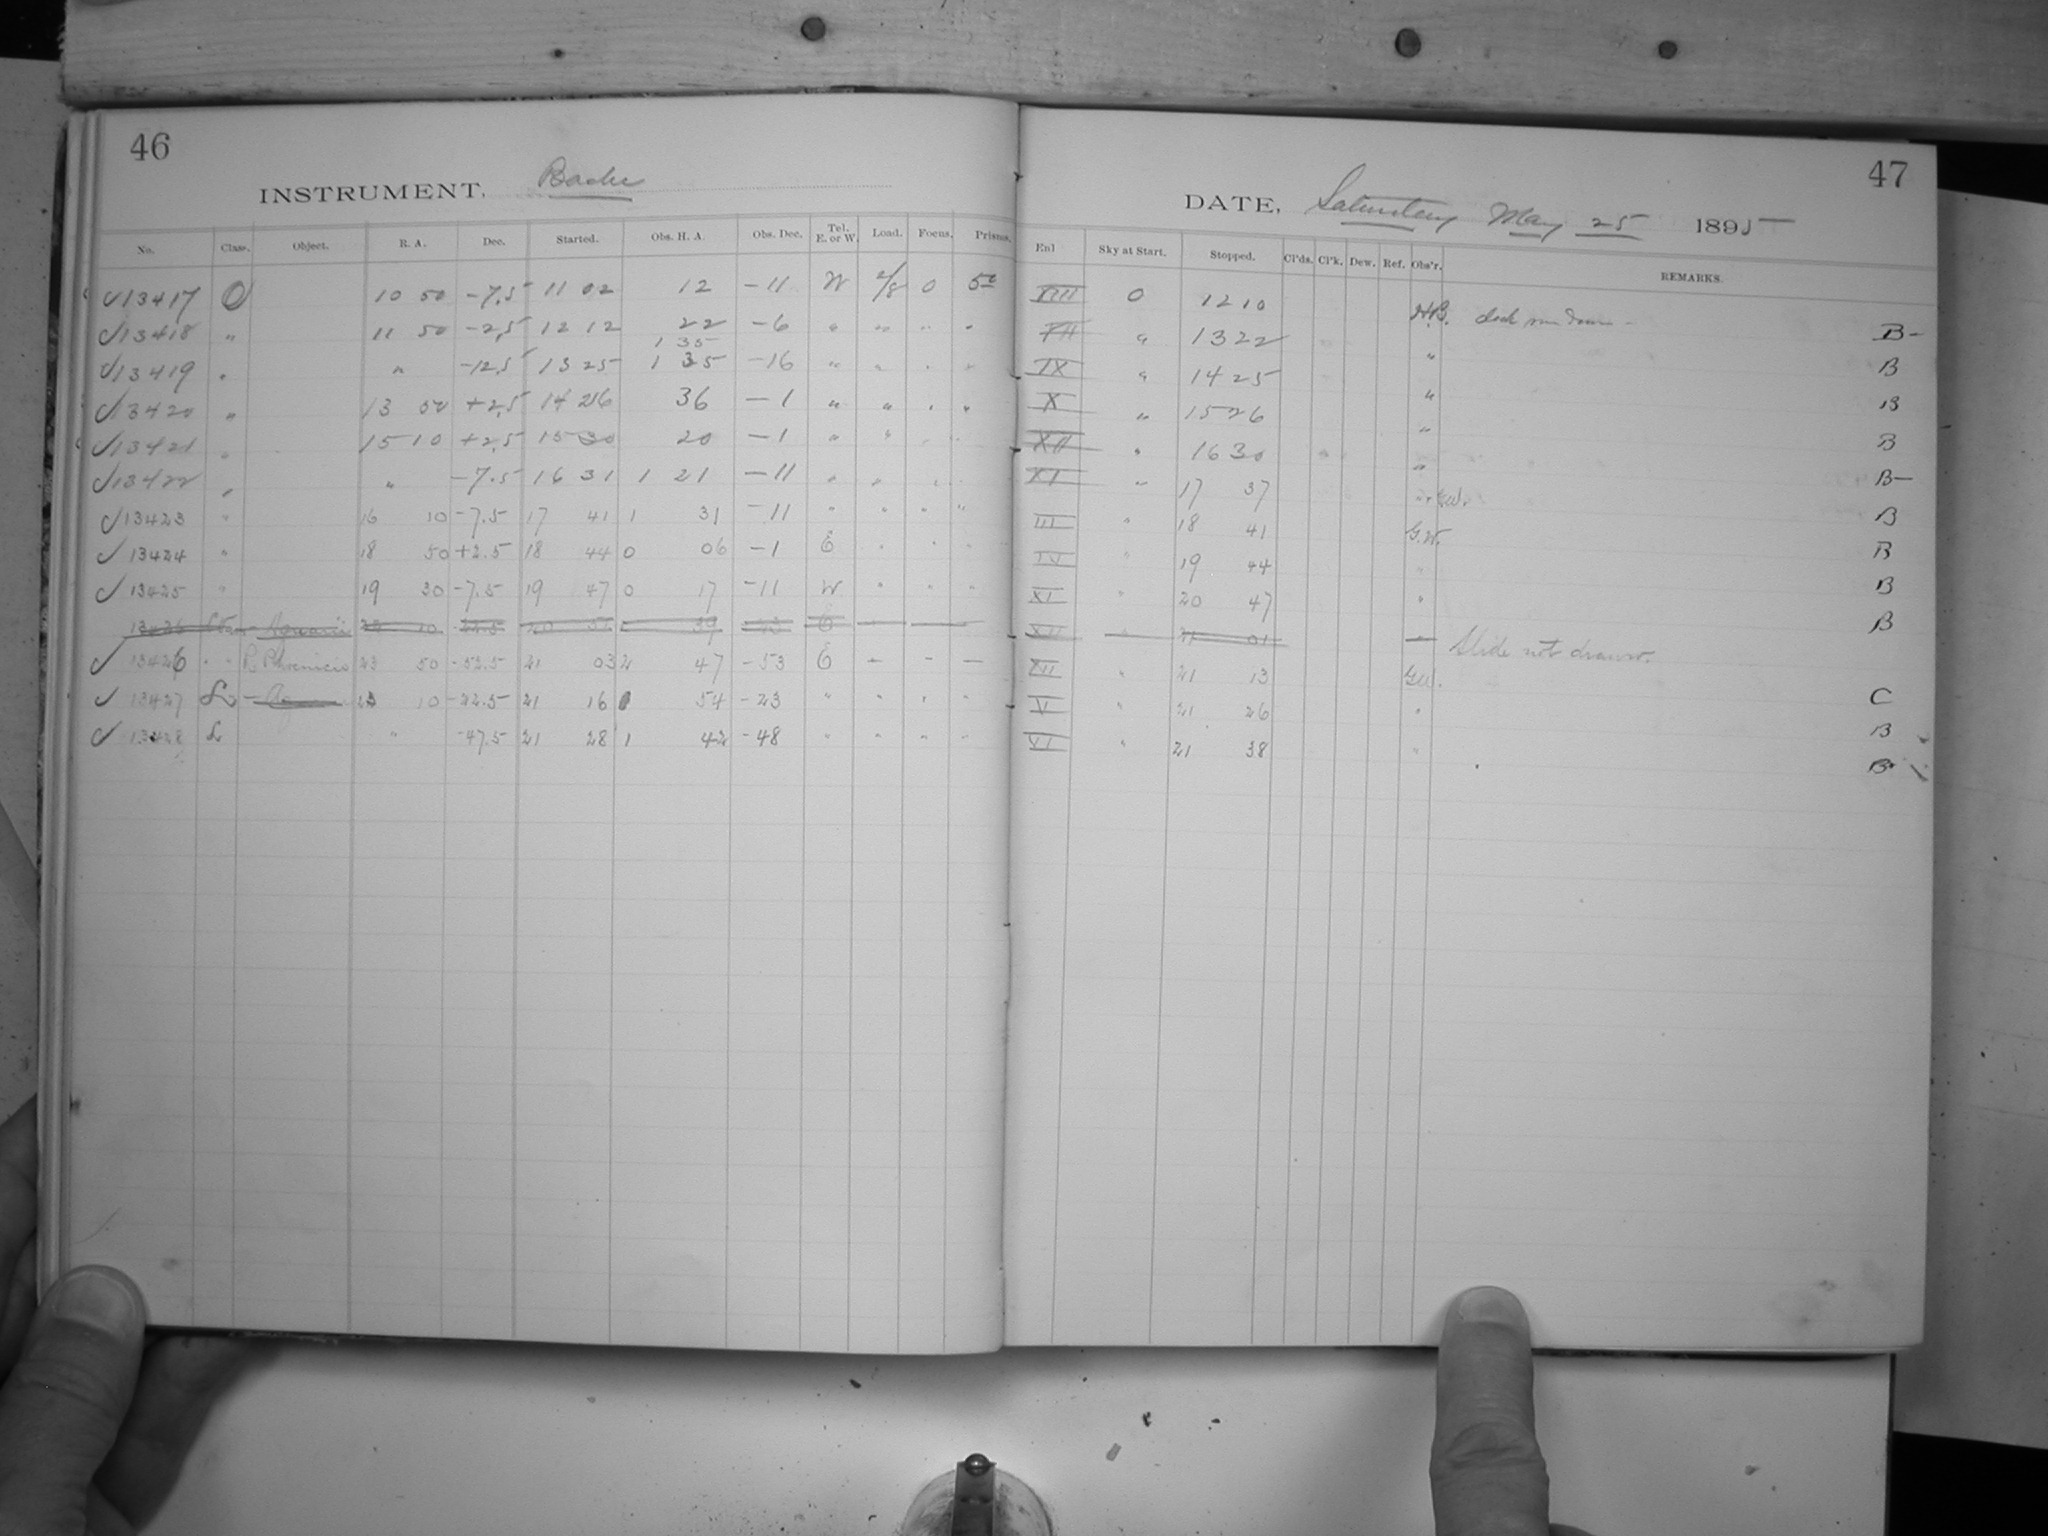 46
INSTRUMENT, Bache
No. Class. Object. R. A. Dec. Started. Obs. H. A. Obs. Dec. Tel. E. or W. Load. Focus. Prisms.
✓13417 O 10 50 -7.5 11 02 12 -11 W 2/8 0 50
✓13418 " 11 50 -2.5 12 12 22 -6 " " " "
1 35
✓13419 " " -12.5 13 25 1 35 -16 " " " "
✓13420 " 13 50 +2.5 14 26 36 -1 " " " "
✓13421 " 15 10 +2.5 15 30 20 -1 " " " "
✓13422 " " -7.5 16 31 1 21 -11 " " " "
✓13423 " 16 10 -7.5 17 41 1 31 -11 " " " "
✓13424 " 18 50 +2.5 18 44 0 06 -1 E " " "
✓13425 " 19 30 -7.5 19 47 0 17 -11 W " " "
13426 Aquarii 10 39 E
✓13426 " " R Phoenicis 23 50 -52.5 21 03 2 47 -53 E - - -
✓13427 L 23 10 -22.5 21 16 54 -23 " " " "
✓13428 L " -47.5 21 28 1 42 -48 " " " "
47
DATE, Saturday May 25 1895
Enl Sky at Start. Stopped. Cl'ds. Cl'k. Dew. Ref. Obs'r. REMARKS.
VIII 0 12 10 H.B. clock run down B-
VII " 13 22 " B
IX " 14 25 " B
X " 15 26 " B
XII " 16 30 " B-
XI " 17 37 " G.W. B
III " 18 41 G.W. B
IV " 19 44 " B
XI " 20 47 " B
XII " 21 01 Slide not drawn.
XII " 21 13 G.W. C
V " 21 26 " B
VI " 21 38 " B